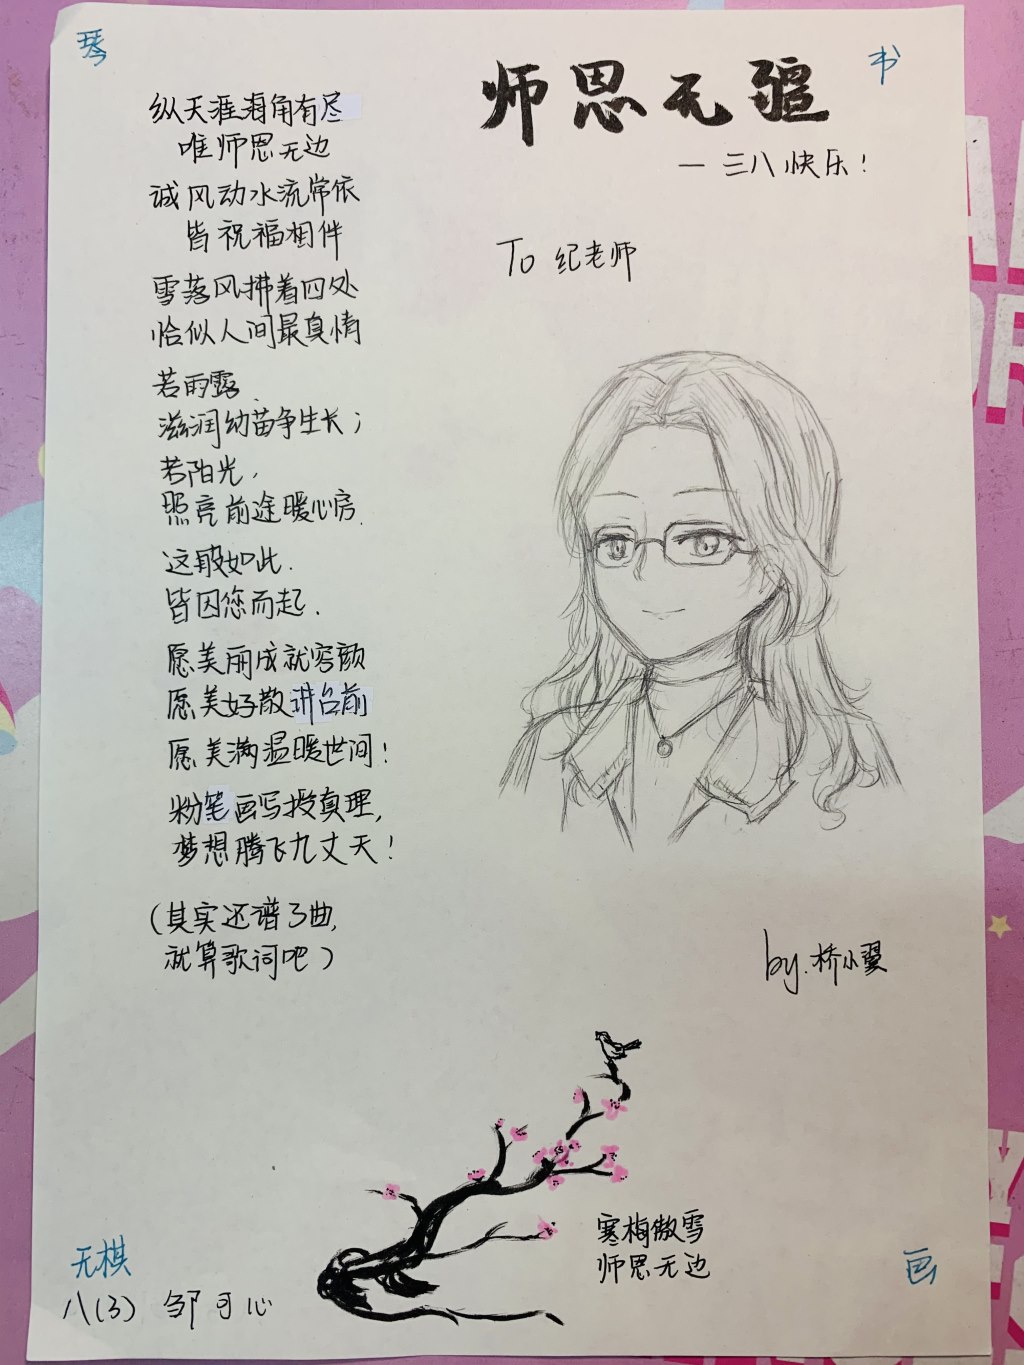 琴
书
师恩无疆
— 三八快乐！
To 纪老师
纵天涯海角有尽
唯师恩无边
诚风动水流常依
皆祝福相伴
雪落风拂着四处
恰似人间最真情
若雨露、
滋润幼苗争生长；
若阳光，
照亮前途暖心房.
这般如此.
皆因您而起.
愿美丽成就容颜
愿美好散讲台前
愿美满温暖世间！
粉笔画写授真理，
梦想腾飞九丈天！
（其实还谱了曲，
就算歌词吧）
by. 桥小翼
寒梅傲雪
师恩无边
无棋
画
八(3) 邹可心